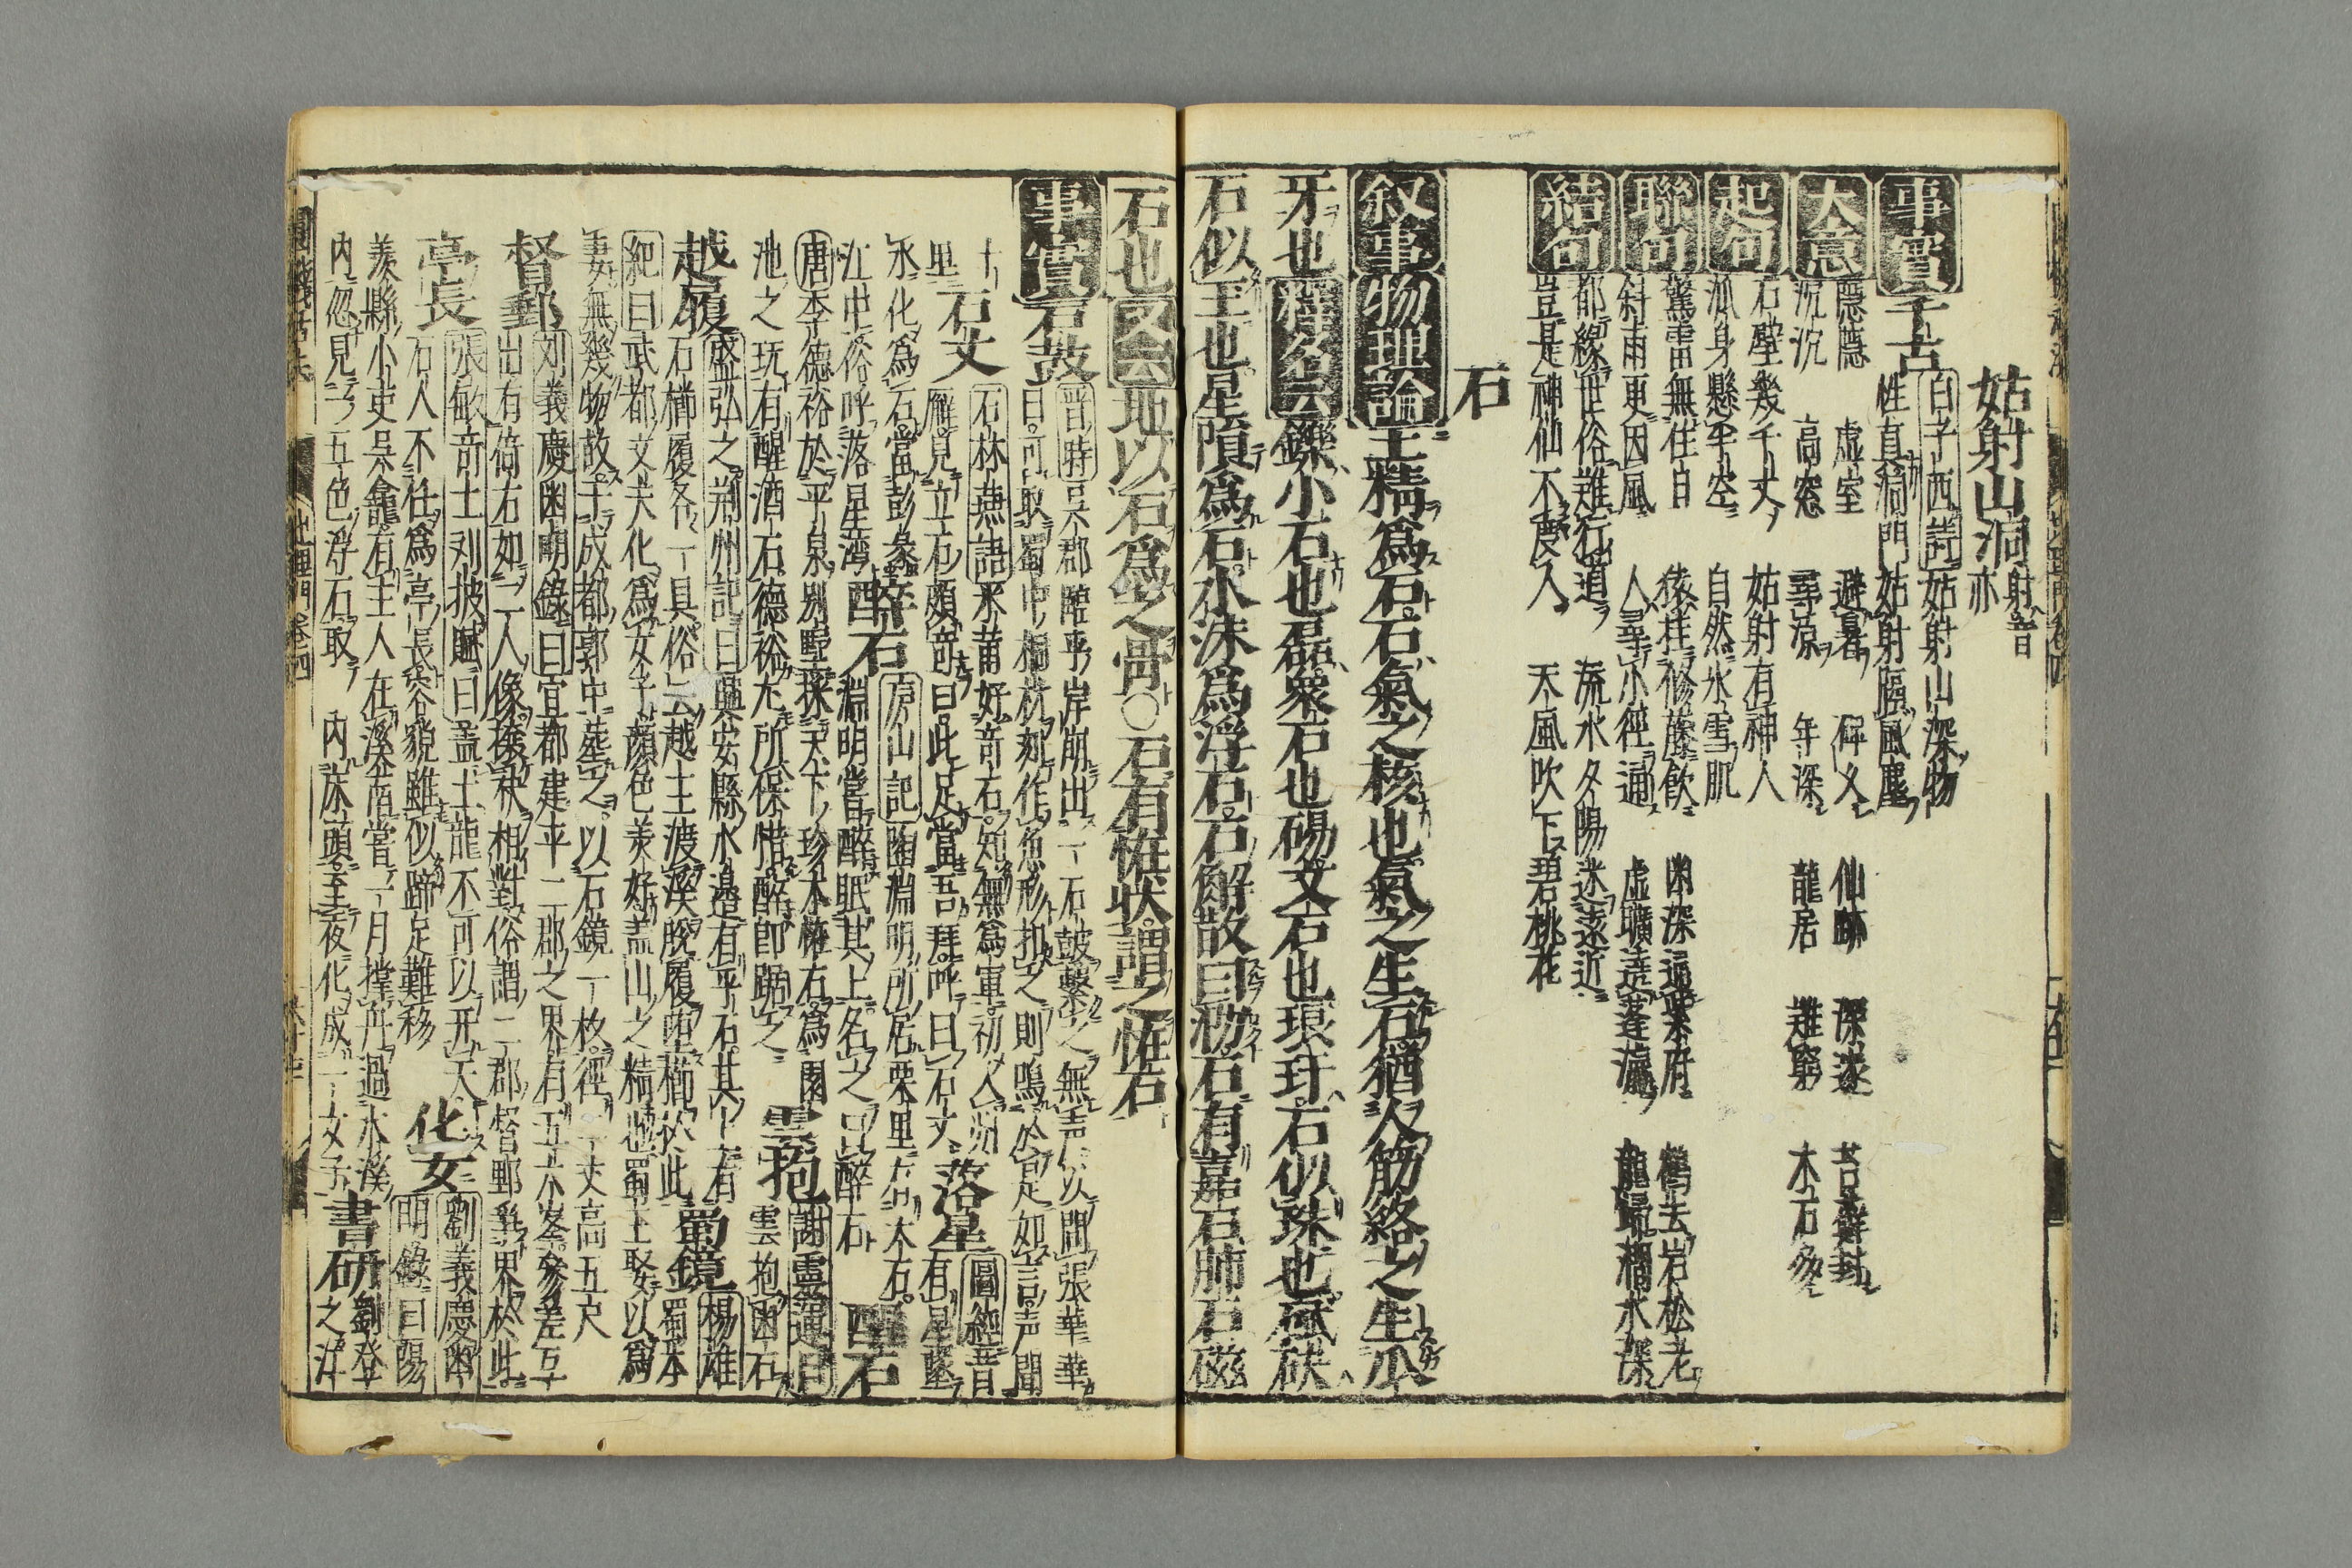 姑射山洞 射音亦
事實 千古 白子西詩 姑射山深物
性直洞門姑射臨風塵
大意 隱隱 虚室 避暑 碑久 仙跡 深邃 苔蘚封
沉沉 高窓 尋凉 年深 龍居 難窮 木石多
起句 石壁幾千丈 姑射有神人
孤身懸半空 自然氷雪肌
聯句 驚雷無住日 猿挂修藤飲 幽深逼 府 鶴去岩松老
斜雨更因風 人尋小徑通 虚曠遶蓬瀛 龍歸 水深
結句 都緣世俗難行道 流水夕陽迷遠近
豈是神仙不度人 天風吹下碧桃花
石
叙事 物理論 土精爲石石氣之核也氣之生石猶人筋絡之生爪
牙也 釋名云 礫小石也磊衆石也碭文石也琅玕石似珠也碔砆
石似玉也星隕爲石水沫爲浮石石解散曰泐石有嘉石肺石磁
石也 又云 地以石爲之骨〇石有恠状謂之恠石
事實 石鼓 晋時 呉郡臨平岸崩出一石鼓擊之無声以問張華華
曰可取蜀中桐材刻作魚形扣之則鳴於是如言声聞
十里 石丈 石林燕語 米芾好奇石知無爲軍初入州
廨見立石頗奇曰此足當吾拜呼曰石丈 落星 圖經 昔有星墜
水化爲石當彭蠡
江中俗呼落星湾 醉石 庐山記 陶淵明所居栗里有大石
淵明嘗醉眠其上名之曰醉石 醒石
唐李德裕於平泉別墅採天下珍木恠石爲園
池之玩有醒酒石德裕尤所保惜醉即踞之 雲抱 謝靈運曰 雲抱幽石
越履 盛弘之荆州記曰 興安縣水邊有平石其上有
石櫛履各一具俗云越王渡溪脱履墮櫛於此 蜀鏡 楊雄蜀本
紀曰 武都丈夫化爲女子顔色美好盖山之精也蜀王娶以爲
妻無幾物故於成都郭中葬之以石鏡一枚徑一丈高五尺
督郵 刘義慶幽明錄曰 宜都建平二郡之界有五六峯參差互
出有倚石如二人像攘袂相對俗謂二郡督郵爭界於此
亭長 張敏奇士刘披賦曰 盖土龍不可以升天
石人不任爲亭長容貌雖似蹄足難移 化女 劉義慶幽
明錄曰 陽
羡縣小吏呉龕有主人在溪南當一月撑舟過水溪
内忽見一五色浮石取 内床頭至夜化成一女子 書研 劉登之洋